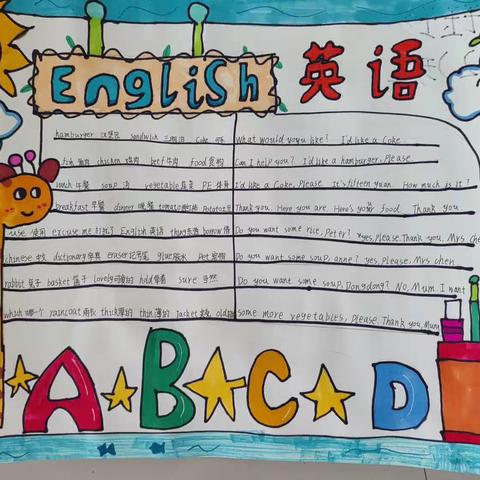 English 英语
hamburger 汉堡包 sandwich 三明治 Coke 可乐
fish 鱼肉 chicken 鸡肉 beef 牛肉 food 食物
lunch 午餐 soup 汤 vegetable 蔬菜 PE 体育
breakfast 早餐 dinner 晚餐 tomato 西红柿 Potato 土豆
use 使用 excuse me 打扰了 English 英语 thing 东西 borrow 借
chinese 中文 dictionary 字典 eraser glue 胶水 Pet 宠物
rabbit 兔子 basket 篮子 lovely 可爱的 hold 拿着 sure 当然
which 哪一个 raincoat 雨衣 thick 厚的 thin 薄的 Jacket 夹克 old
What would you like? I'd like a Coke.
Can I help you? I'd like a hamburger, Please.
I'd like a Coke, Please. It's fifteen yuan. How much is it?
Thank you. Here you are. Here's your food. Thank you.
Do you want some rice, Peter? yes, Please. Thank you, Mrs Che
Do you want some soup, anne? yes, Please, Mrs chen.
Do you want some soup, Dongdong? No, Mum. I want
some more vegetables, Please. Thank you, Mum
A B C D